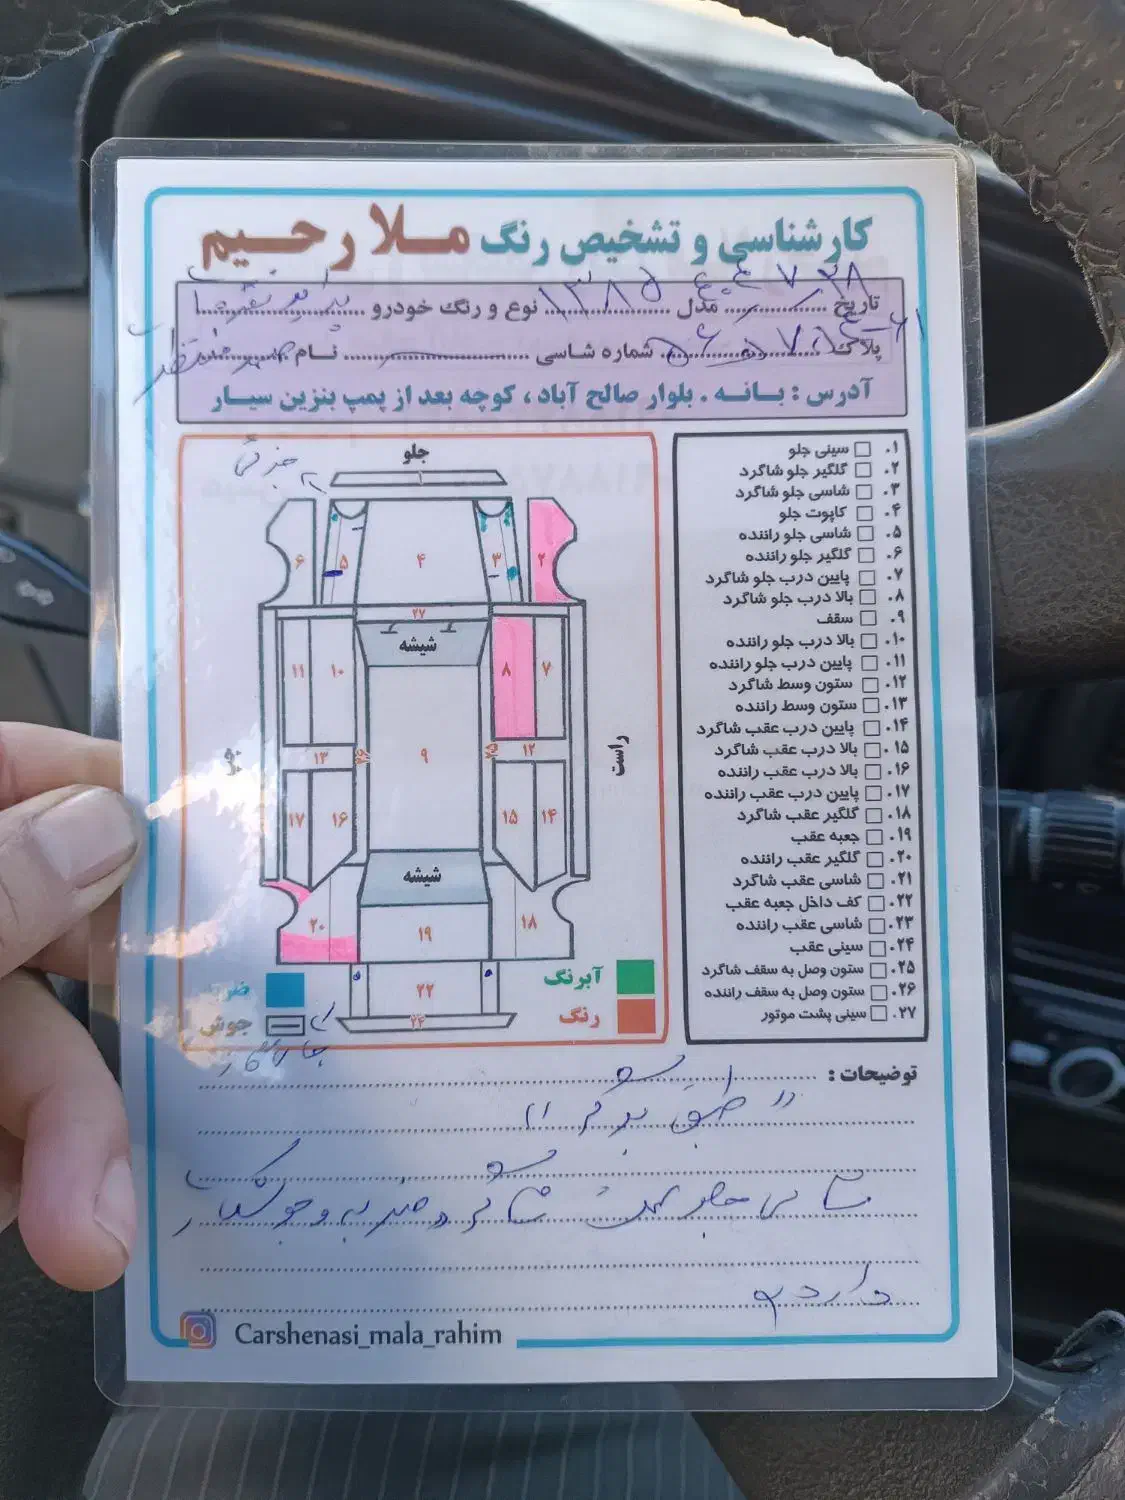 کارشناسی و تشخیص رنگ ملا رحیم
تاریخ مدل ۱۳۸۵ نوع و رنگ خودرو
پلاک شماره شاسی نام
آدرس : بانه . بلوار صالح آباد ، کوچه بعد از پمپ بنزین سیار
۱. سینی جلو
۲. گلگیر جلو شاگرد
۳. شاسی جلو شاگرد
۴. کاپوت جلو
۵. شاسی جلو راننده
۶. گلگیر جلو راننده
۷. پایین درب جلو شاگرد
۸. بالا درب جلو شاگرد
۹. سقف
۱۰. بالا درب جلو راننده
۱۱. پایین درب جلو راننده
۱۲. ستون وسط شاگرد
۱۳. ستون وسط راننده
۱۴. پایین درب عقب شاگرد
۱۵. بالا درب عقب شاگرد
۱۶. بالا درب عقب راننده
۱۷. پایین درب عقب راننده
۱۸. گلگیر عقب شاگرد
۱۹. جعبه عقب
۲۰. گلگیر عقب راننده
۲۱. شاسی عقب شاگرد
۲۲. کف داخل جعبه عقب
۲۳. شاسی عقب راننده
۲۴. سینی عقب
۲۵. ستون وصل به سقف شاگرد
۲۶. ستون وصل به سقف راننده
۲۷. سینی پشت موتور
جلو
۱
۶ ۵ ۴ ۳ ۲
۲۷
شیشه
۱۱ ۱۰ ۸ ۷
راست
۱۳ ۹ ۱۲
۱۷ ۱۶ ۱۵ ۱۴
شیشه
۲۰ ۱۹ ۱۸
۲۲
۲۴
آبرنگ
رنگ
جوش
توضیحات :
شاگرد ضربه و جوشکاری
دارد
Carshenasi_mala_rahim